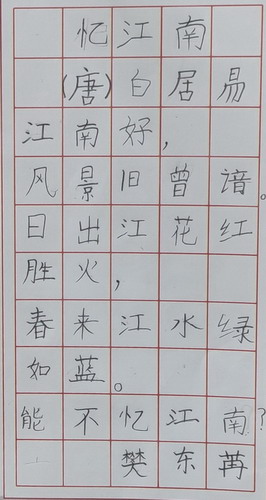 忆江南
(唐)白居易
江南好,
风景旧曾谙。
日出江花红
胜火,
春来江水绿
如蓝。
能不忆江南?
樊东苒